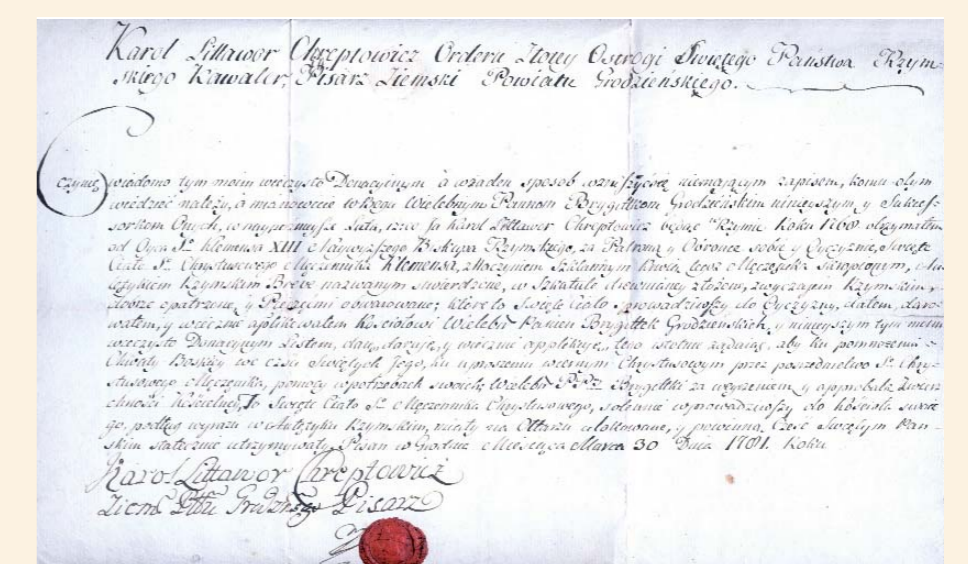 Karol Littawor Chreptowicz Orderu Złotey Ostrogi Swiętego Państwa Rzym-
skiego Kawaler, Pisarz Ziemski Powiatu Grodzieńskiego.
Czynię wiadomo tym moim wieczysto Donacyinym a w żaden sposob wzruszyć się niemaiącym zapisem, komu o tym
wiedzieć należy, a mianowicie Wielebnym Pannom Brygitkom Grodzieńskim ninieyszym y Sukces-
sorkom Onych, w naypoznieysze Lata, iż co Ja Karol Littawor Chreptowicz będąc w Rzymie Roku 1768 otrzymałem
od Oyca Sº Klemensa XIII Naywyższego Biskupa Rzymskiego, za Patrona y Obrońcę sobie y Oyczyznie, Swięte
Ciało Sº Chrystusowego Męczennika Klemensa, z Naczyniem Szklannym Krwią tegoż Męczennika skropionym,
Językiem Rzymskim Breve nazwanym stwierdzone, w Szkatule drewnianey złożone, zwyczaiem Rzymskim,
dobrze opatrzone, y Pieczęcmi obwarowane; ktore to Swięte Ciało sprowadziwszy do Oyczyzny, dałem, daro-
wałem, y wiecznie applikowałem Kościołowi Wielebº Panien Brygittek Grodzieńskich, y ninieyszym tym moim
wieczysto Donacyinym Listem, daię, daruię, y wiecznie applikuię, tego istotnie żądaiąc, aby ku pomnożeniu
Chwały Boskiey we czci Swiętych Jego, ku uproszeniu wiernym Chrystusowym przez posrzednictwo Sº Chry-
stusowego Męczennika, pomocy w potrzebach swoich, Wielebº PPnº Brygittki za wyrzeniem y approbatą Zwierz-
chności Kościelney, To Swięte Ciało Sº Męczennika Chrystusowego, solennie wprowadziwszy do Kościoła swoie-
go, podług wyrazu w Autętyku Rzymskim, miały na Ołtarzu ulokowane, y powinną Cześć Swiętym Pań-
skim statecznie utrzymywały. Pisan w Grodnie Miesiąca Marca 30 Dnia 1781. Roku
Karol Littawor Chreptowicz
Ziem Pttu Grodzgo Pisarz